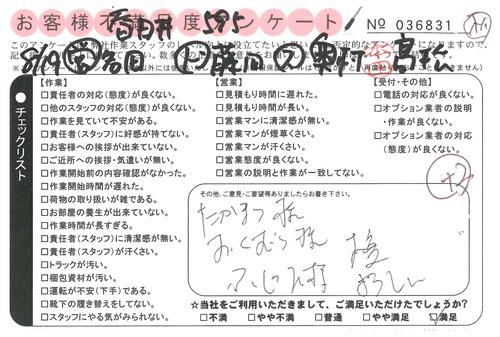 お客様不満足度アンケート
№ 036831
チェックリスト
【作業】
□責任者の対応(態度)が良くない。
□他のスタッフの対応(態度)が良くない。
□作業を見ていて不安がある。
□責任者(スタッフ)に好感が持てない。
□お客様への挨拶が出来ていない。
□ご近所への挨拶・気遣いが無い。
□作業開始前の内容確認がなかった。
□作業開始時間が遅れた。
□荷物の取り扱いが雑である。
□お部屋の養生が出来ていない。
□作業時間が長すぎる。
□責任者(スタッフ)に清潔感が無い。
□責任者(スタッフ)が汗くさい。
□トラックが汚い。
□梱包資材が汚い。
□運転が不安(下手)である。
□靴下の履き替えをしてない。
□スタッフにやる気がみられない。
【営業】
□見積もり時間に遅れた。
□見積もり時間が長い。
□営業マンに清潔感が無い。
□営業マンが煙草くさい。
□営業マンが汗くさい。
□営業態度が良くない。
□営業の説明と作業が一致してない。
【受付・その他】
□電話の対応が良くない。
□オプション業者の説明
・作業が良くない。
□オプション業者の対応
(態度)が良くない。
+2
その他、ご意見・ご要望等ありましたらお書き下さい。
たかまつ様
おくむら様
ふじた様
☆当社をご利用いただきまして、ご満足いただけてでしょうか?
□不満 □やや不満 □普通 □やや満足 □満足